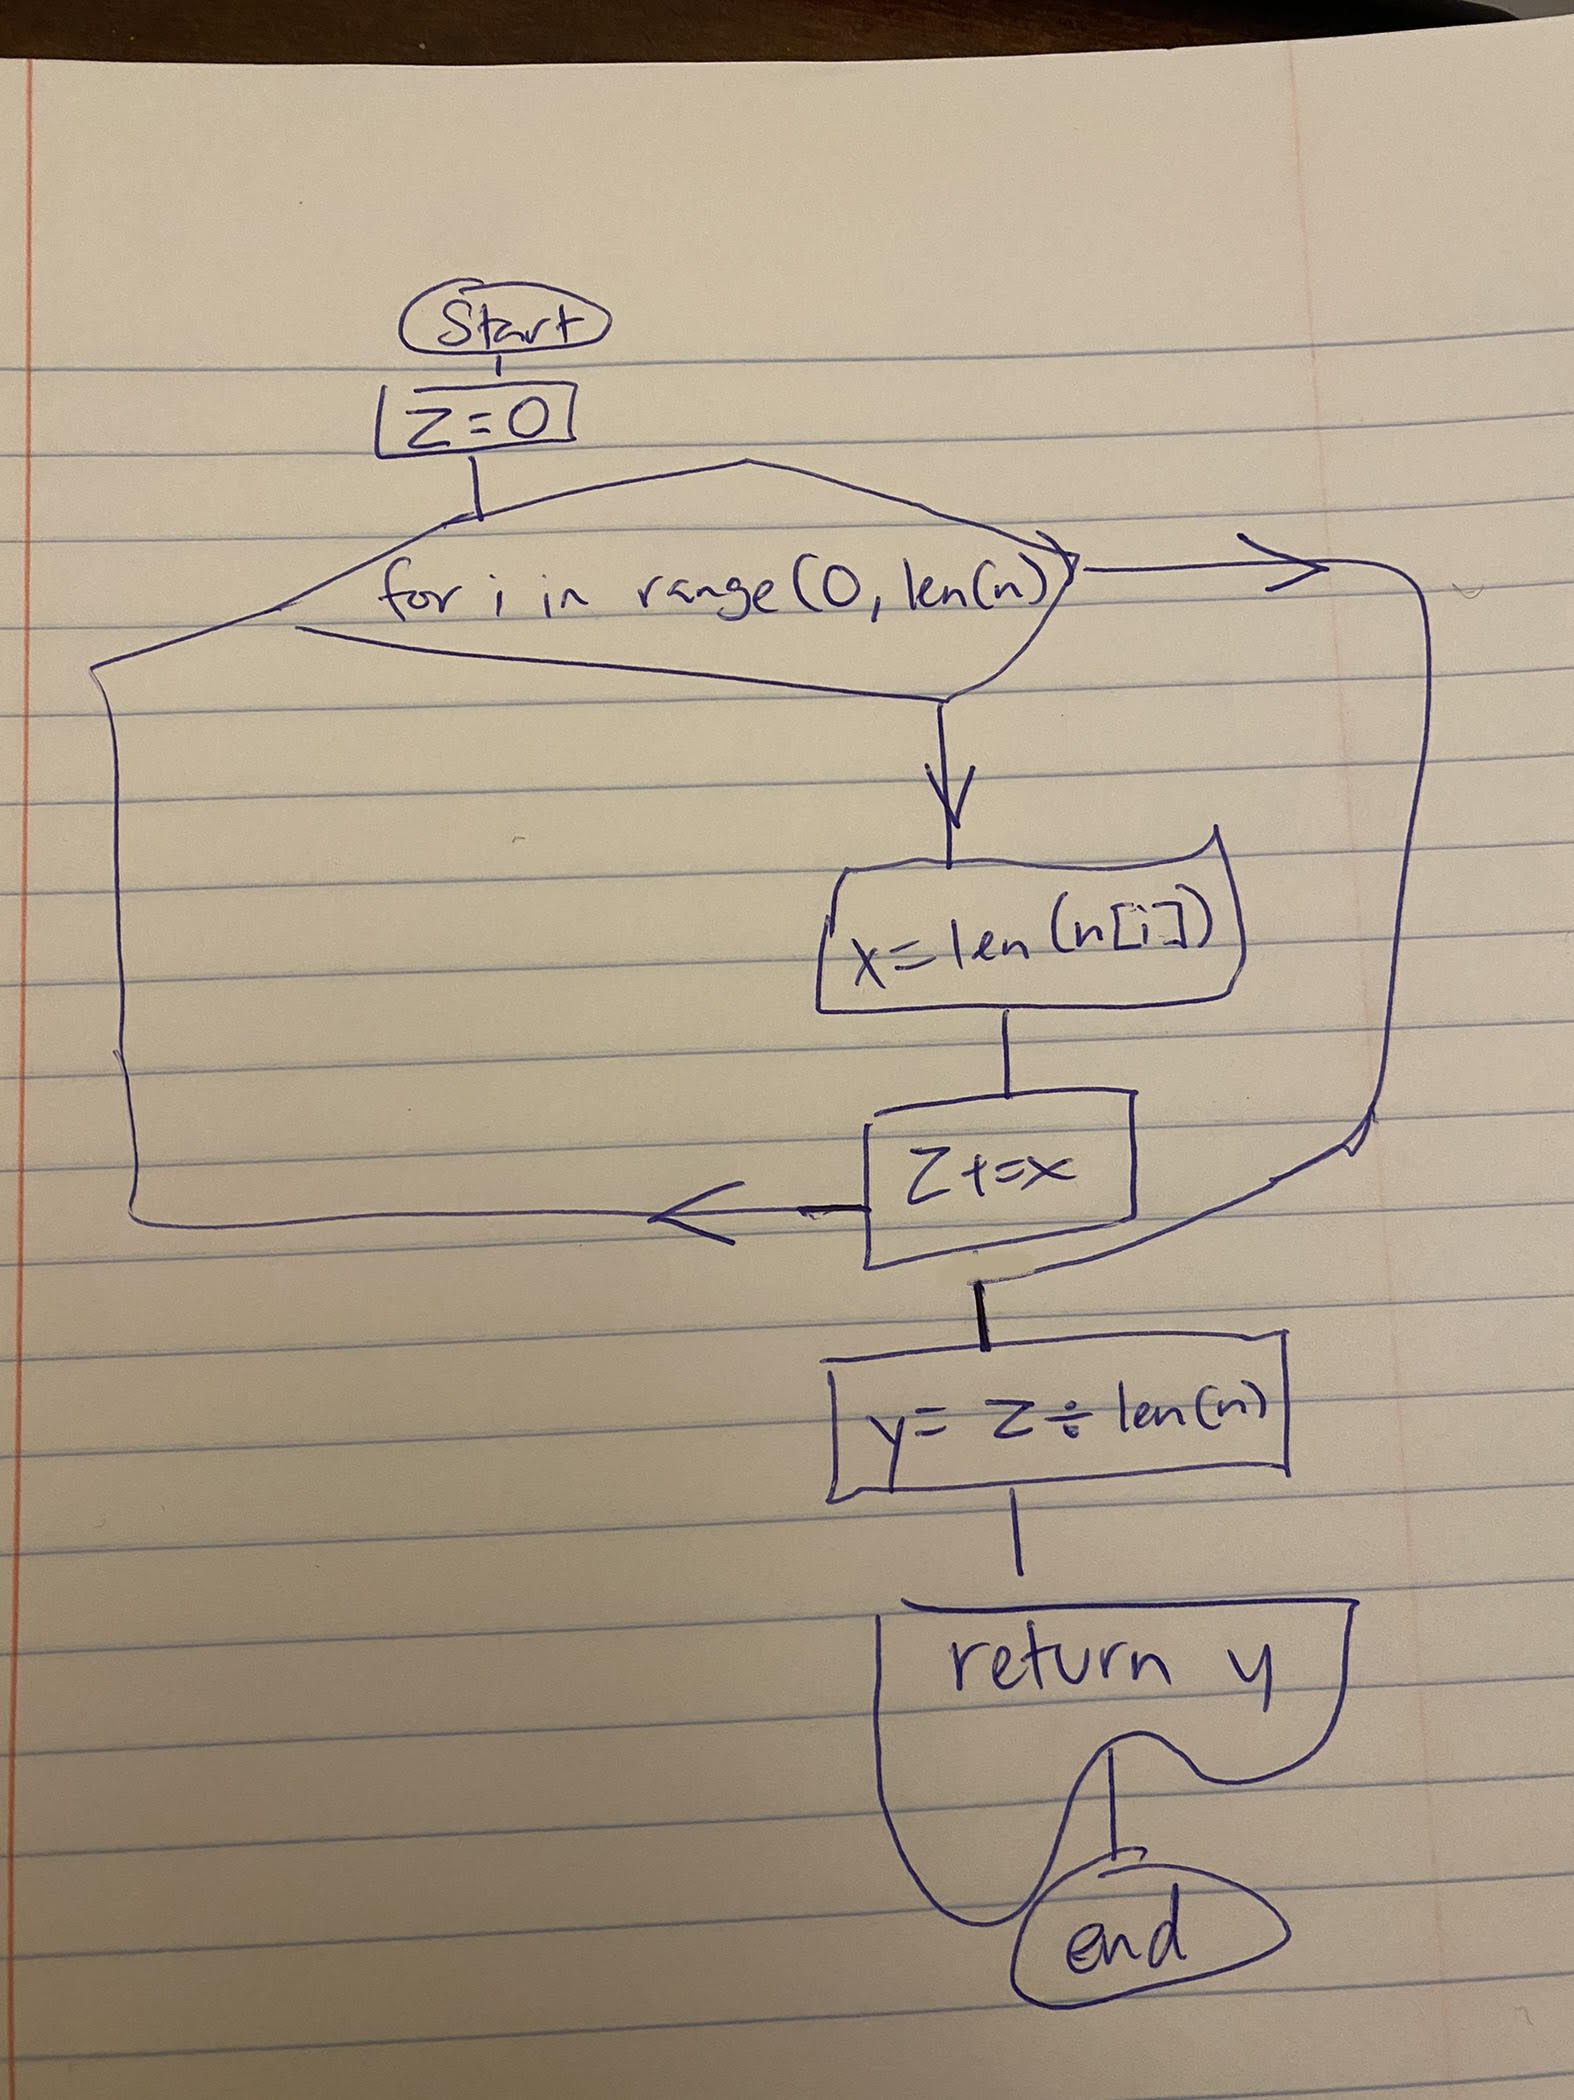 Start
Z=0
for i in range(0, len(n)
x=len(n[i])
Z+=x
y= Z÷len(n)
return y
end